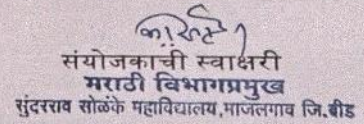 संयोजकाची स्वाक्षरी
मराठी विभागप्रमुख
सुंदरराव सोळंके महाविद्यालय,माजलगाव जि.बीड